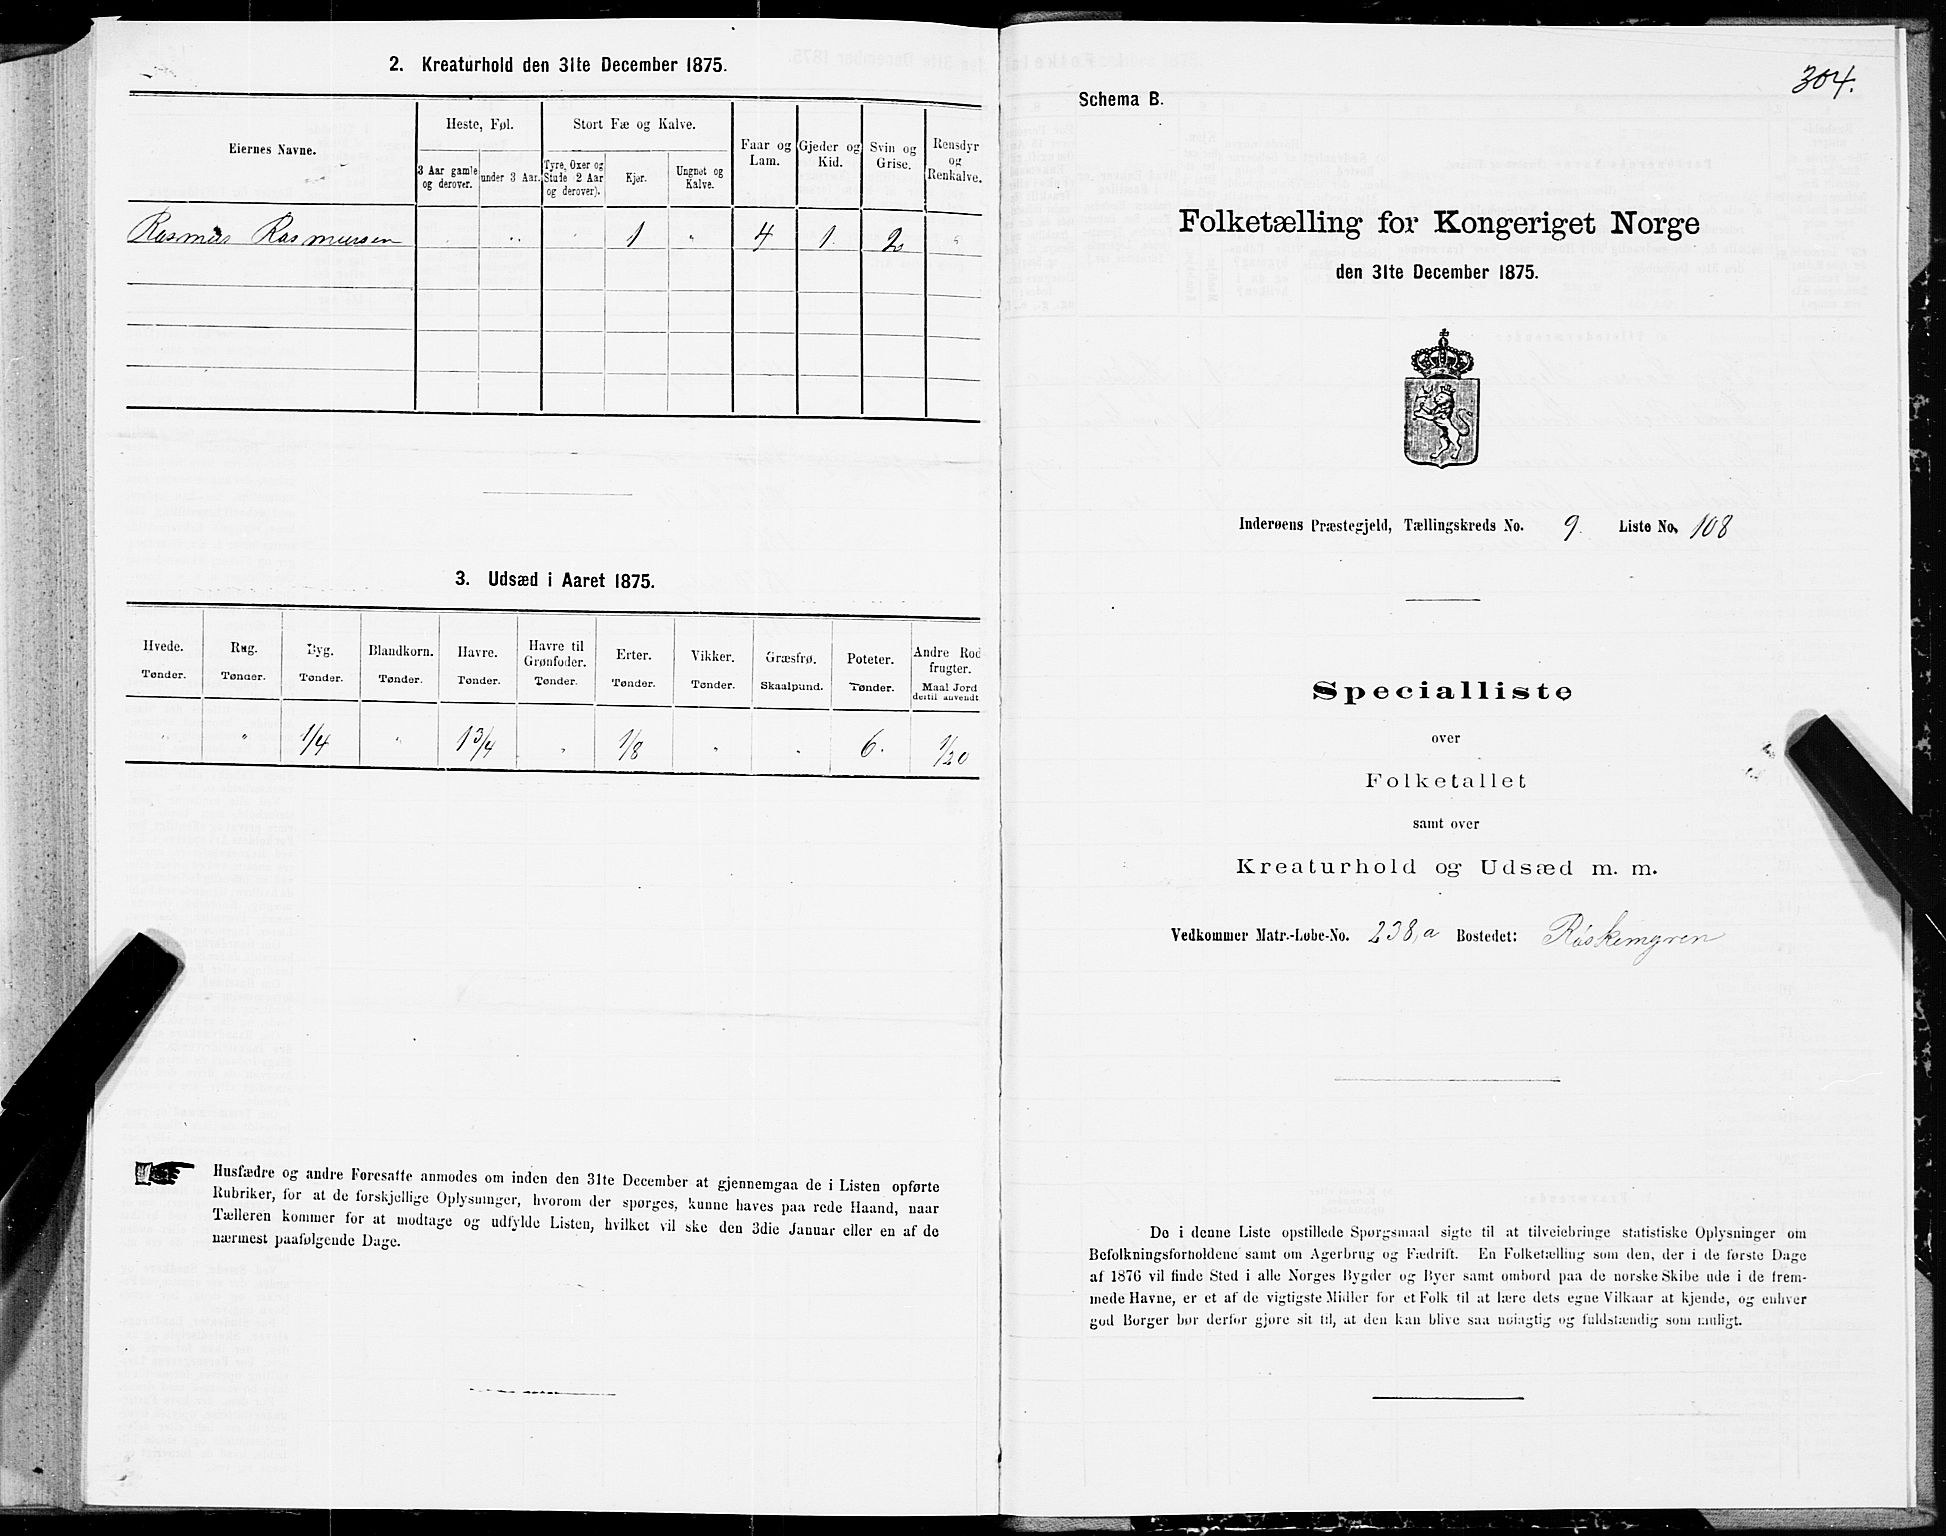 2. Kreaturhold den 31te December 1875.
Eiernes Navne.
Heste, Føl.
Stort Fæ og Kalve.
Faar og Lam.
Gjeder og Kid.
Svin og Grise.
Rensdyr og Renkalve.
3 Aar gamle og derover.
under 3 Aar.
Tyre, Oxer og Stude 2 Aar og derover).
Kjør.
Ungnøt og Kalve.
Rasmus Rasmussen " 1 " 4 1. 2 "
3. Udsæd i Aaret 1875.
Hvede. Rug. Byg. Blandkorn. Havre. Havre til Grønfoder. Erter. Vikker. Græsfrø. Poteter. Andre Rodfrugter.
Tønder. Tønder. Tønder. Tønder. Tønder. Tønder. Tønder. Tønder. Skaalpund. Tønder. Maal Jord dertil anvendt
" " 1/4 " 1 3/4 " 1/8 " " 6. 1/20
Husfædre og andre Foresatte anmodes om inden den 31te December at gjennemgaa de i Listen opførte
Rubriker, for at de forskjellige Oplysninger, hvorom der spørges, kunne haves paa rede Haand, naar
Tælleren kommer for at modtage og udfylde Listen, hvilket vil ske den 3die Januar eller en af de
nærmest paafølgende Dage.
304.
Schema B.
Folketælling for Kongeriget Norge
den 31te December 1875.
Inderøens Præstegjeld, Tællingskreds No. 9. Liste No. 108
Specialliste
over
Folketallet
samt over
Kreaturhold og Udsæd m. m.
Vedkommer Matr.-Løbe-No. 238,a Bostedet: Røskemyren
De i denne Liste opstillede Spørgsmaal sigte til at tilveiebringe statistiske Oplysninger om
Befolkningsforholdene samt om Agerbrug og Fædrift. En Folketælling som den, der i de første Dage
af 1876 vil finde Sted i alle Norges Bygder og Byer samt ombord paa de norske Skibe ude i de frem-
mede Havne, er et af de vigtigste Midler for et Folk til at lære dets egne Vilkaar at kjende, og enhver
god Borger bør derfor gjøre sit til, at den kan blive saa nøiagtig og fuldstændig som muligt.